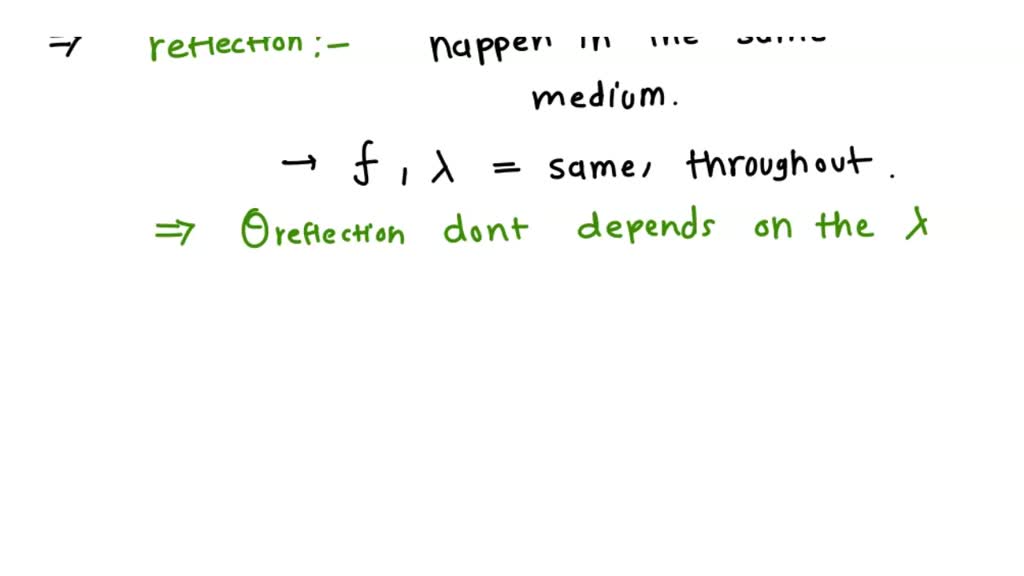 ⇒ reflection :- happen in the same
medium.
→ f, λ = same, throughout.
⇒ θreflection dont depends on the λ